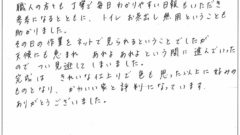 職人の方も丁寧で毎日わかりやすい日報もいただき
参考になるとともに、トイレ お茶出し無用ということも
助かりました。
その日の作業をネットで見られるということでしたが
天候にも恵まれ あれよあれよという間に進んでいった
ので つい見逃してしまいました。
完成は きれいな仕上りで色も思った以上に好みの
ものとなり、かわいい家と評判になっています。
ありがとうございました。